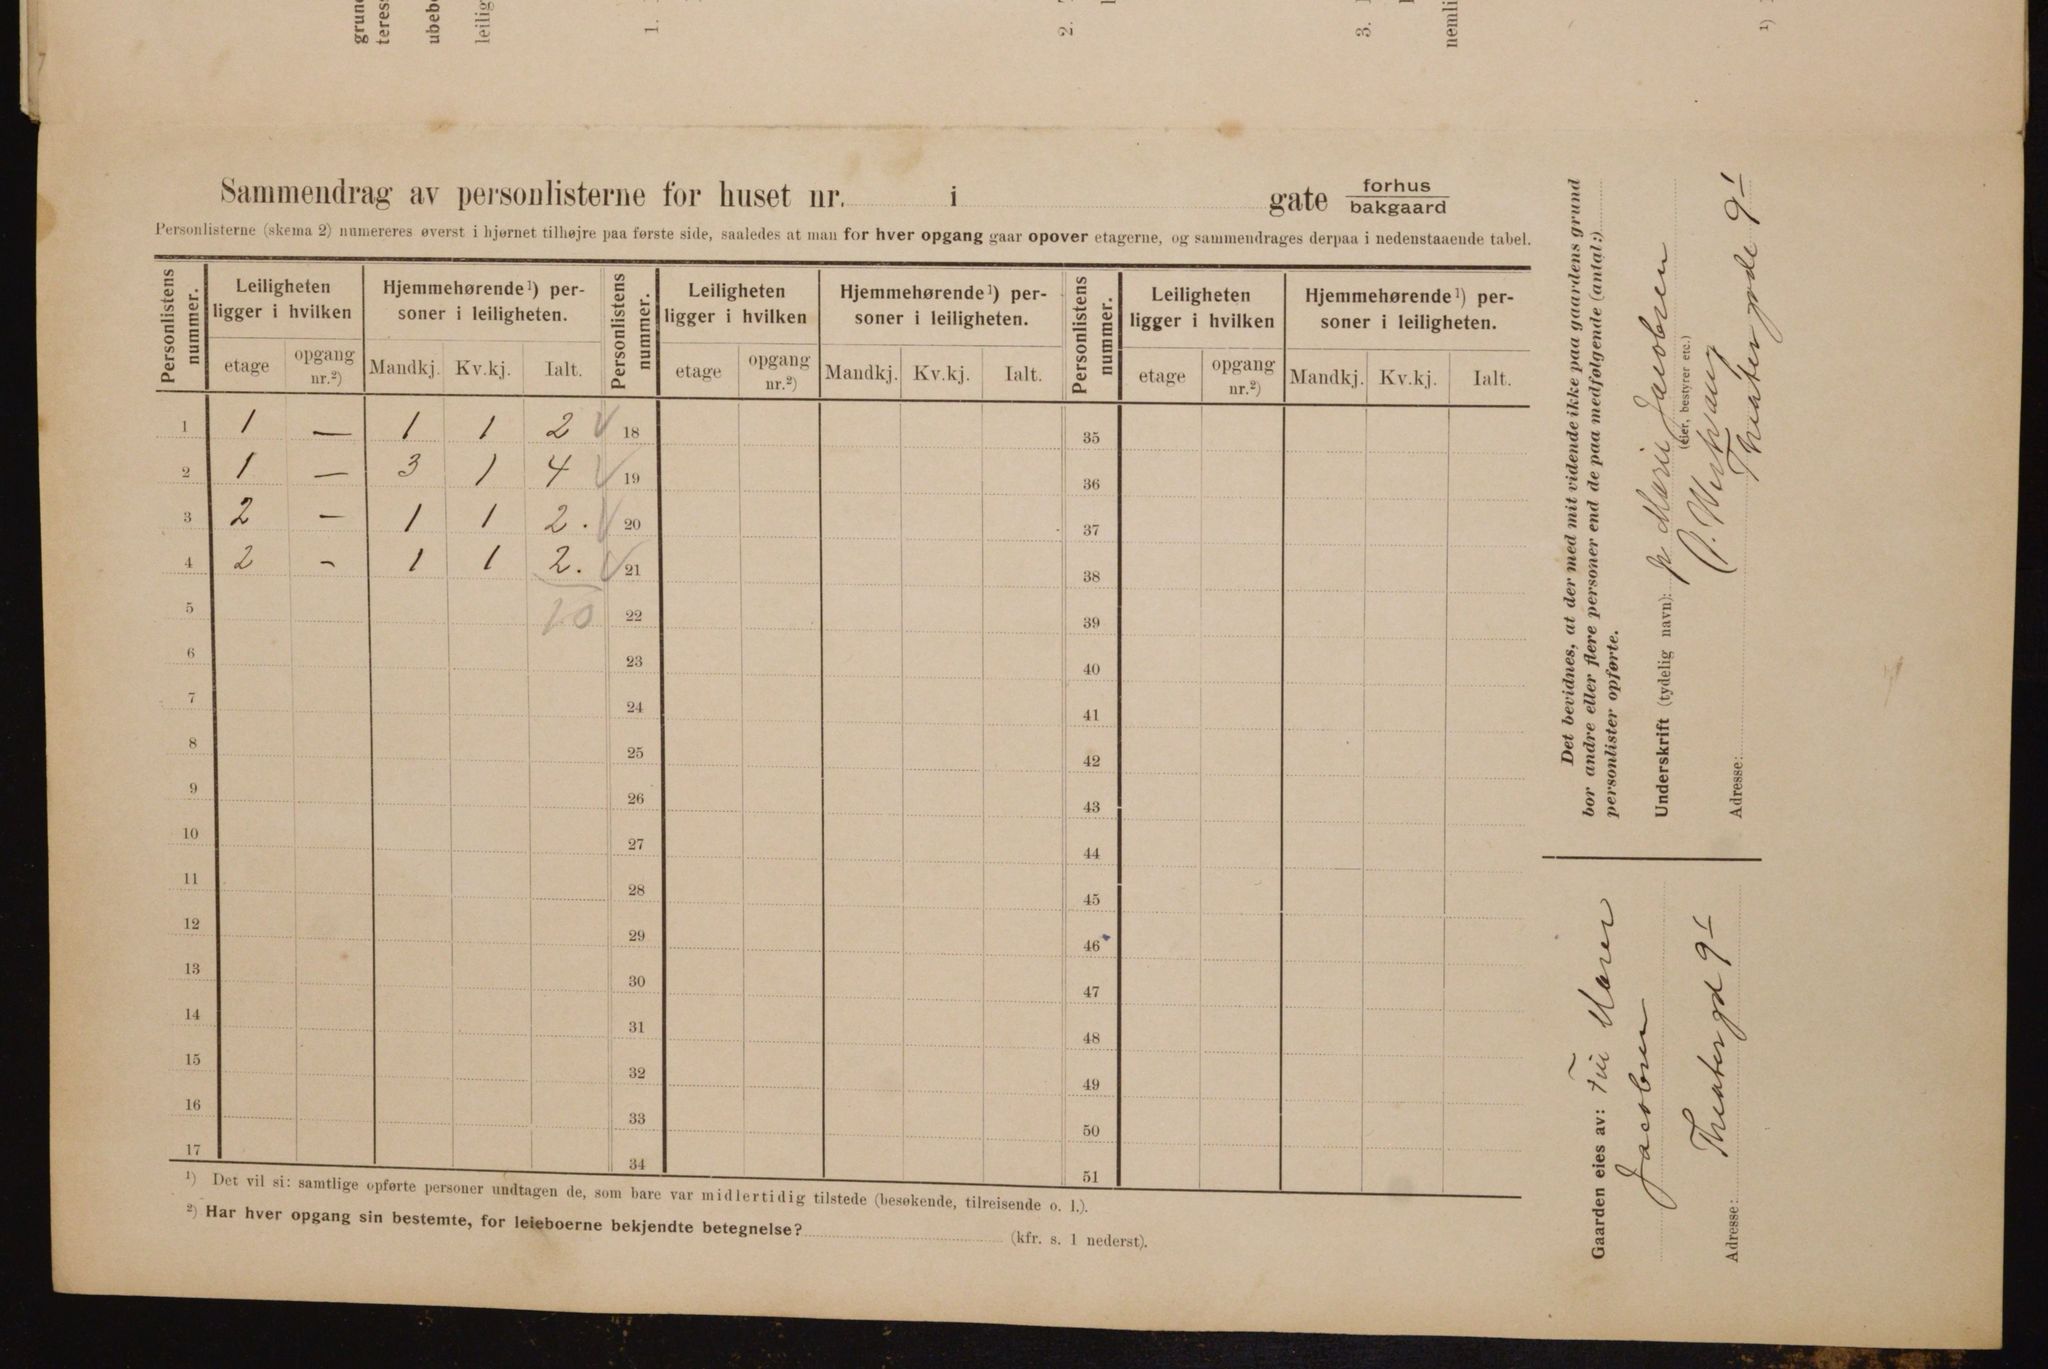 grund
teres
ubebo
leilig
1.
2.
3.
nemli
1)
Sammendrag av personlisterne for huset nr. i gate forhus bakgaard
Personlisterne (skema 2) numereres øverst i hjørnet tilhøjre paa første side, saaledes at man for hver opgang gaar opover etagerne, og sammendrages derpaa i nedenstaaende tabel.
Personlistens nummer. Leiligheten ligger i hvilken Hjemmehørende 1) personer i leiligheten. Personlistens nummer. Leiligheten ligger i hvilken Hjemmehørende 1) personer i leiligheten. Personlistens nummer. Leiligheten ligger i hvilken Hjemmehørende 1) personer i leiligheten.
etage opgang nr.2) Mandkj. Kv.kj. Ialt. etage opgang nr.2) Mandkj. Kv.kj. Ialt. etage opgang nr.2) Mandkj. Kv.kj. Ialt.
1 1 — 1 1 2 18 35
2 1 — 3 1 4 19 36
3 2 — 1 1 2. 20 37
4 2 - 1 1 2. 21 38
5 10 22 39
6 23 40
7 24 41
8 25 42
9 26 43
10 27 44
11 28 45
12 29 46
13 30 47
14 31 48
15 32 49
16 33 50
17 34 51
1) Det vil si: samtlige opførte personer undtagen de, som bare var midlertidig tilstede (besøkende, tilreisende o. l.).
2) Har hver opgang sin bestemte, for leieboerne bekjendte betegnelse? (kfr. s. 1 nederst).
Det bevidnes, at der med mit vidende ikke paa gaardens grund
bor andre eller flere personer end de paa medfølgende (antal:)
personlister opførte.
Underskrift (tydelig navn): Marie Jacobsen
(eier, bestyrer etc.)
Adresse: Theatergade 9
Gaarden eies av:
Jacobsen
Adresse: Theatergd 9